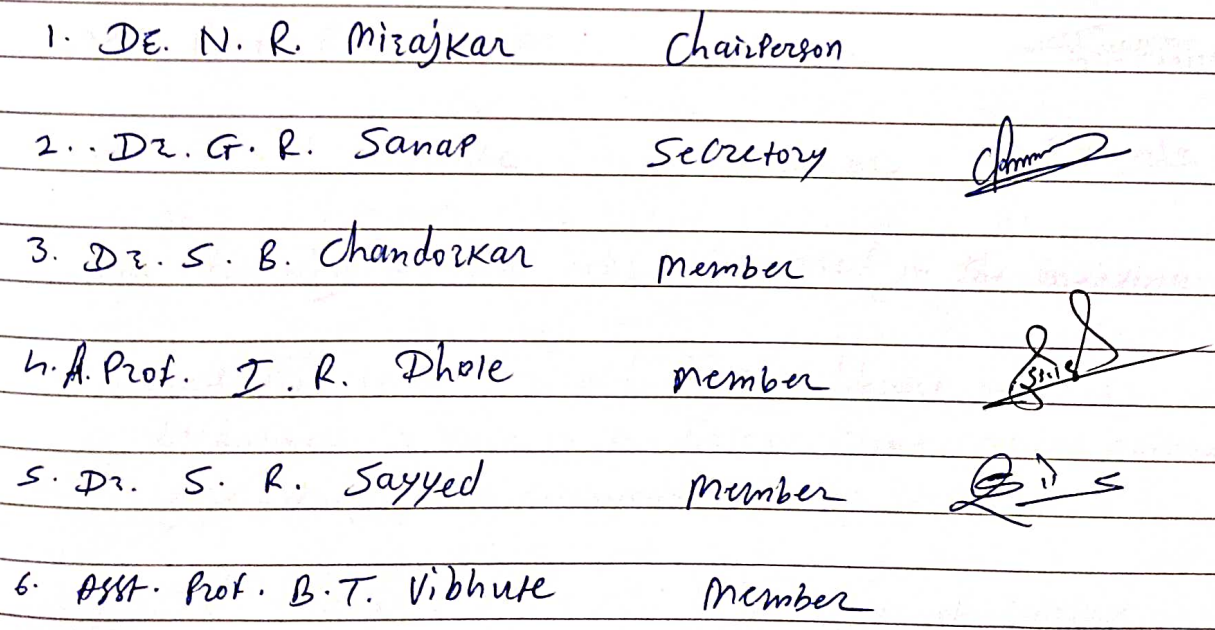 1. Dr. N. R. Mirajkar Chairperson
2.. Dr. G. R. Sanap Secretory
3. Dr. S. B. Chandorkar Member
4. A. Prof. I. R. Dhole Member
5. Dr. S. R. Sayyed Member
6. Asst. Prof. B.T. Vibhute Member